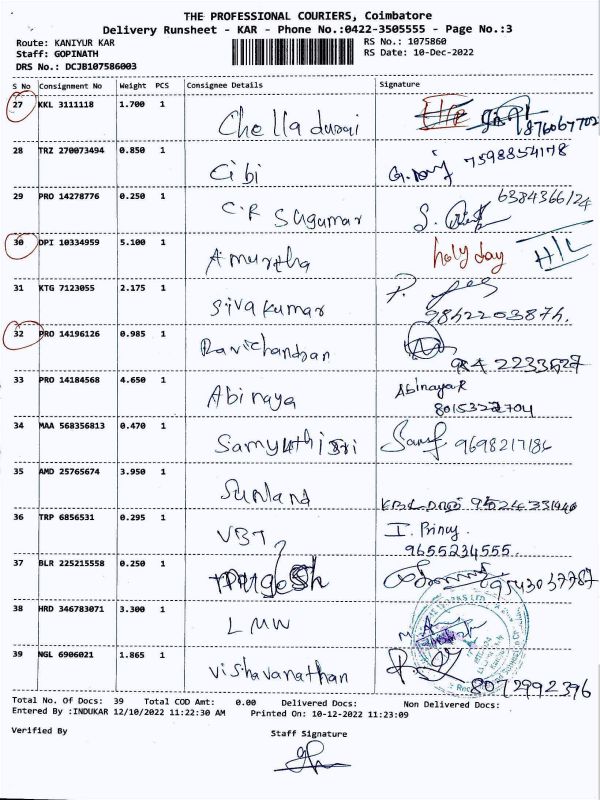 THE PROFESSIONAL COURIERS, Coimbatore
Delivery Runsheet - KAR - Phone No.:0422-3505555 - Page No.:3
Route: KANIYUR KAR
RS No.: 1075860
Staff: GOPINATH
RS Date: 10-Dec-2022
DRS No.: DCJB107586003
S No Consignment No Weight PCS Consignee Details Signature
27 KKL 3111118 1.700 1 Chella durai
28 TRZ 270073494 0.850 1 Cibi 7598854178
29 PRO 14278776 0.250 1 C.R Sugumar 6384366124
30 DPI 10334959 5.100 1 Amurtha holy day H/L
31 KTG 7123055 2.175 1 Sivakumar
32 PRO 14196126 0.985 1 Ravichandran
33 PRO 14184568 4.650 1 Abinaya AbinayaR
8015322704
34 MAA 568356813 0.470 1 9698217186
35 AMD 25765674 3.950 1 Sunland
36 TRP 6856531 0.295 1 VBT
9655234555.
37 BLR 225215558 0.250 1 9543037787
38 HRD 346783071 3.300 1 LMW
39 NGL 6906021 1.865 1 Vishavanathan 8072992396
Total No. Of Docs: 39 Total COD Amt: 0.00 Delivered Docs: Non Delivered Docs:
Entered By :INDUKAR 12/10/2022 11:22:30 AM Printed On: 10-12-2022 11:23:09
Verified By
Staff Signature